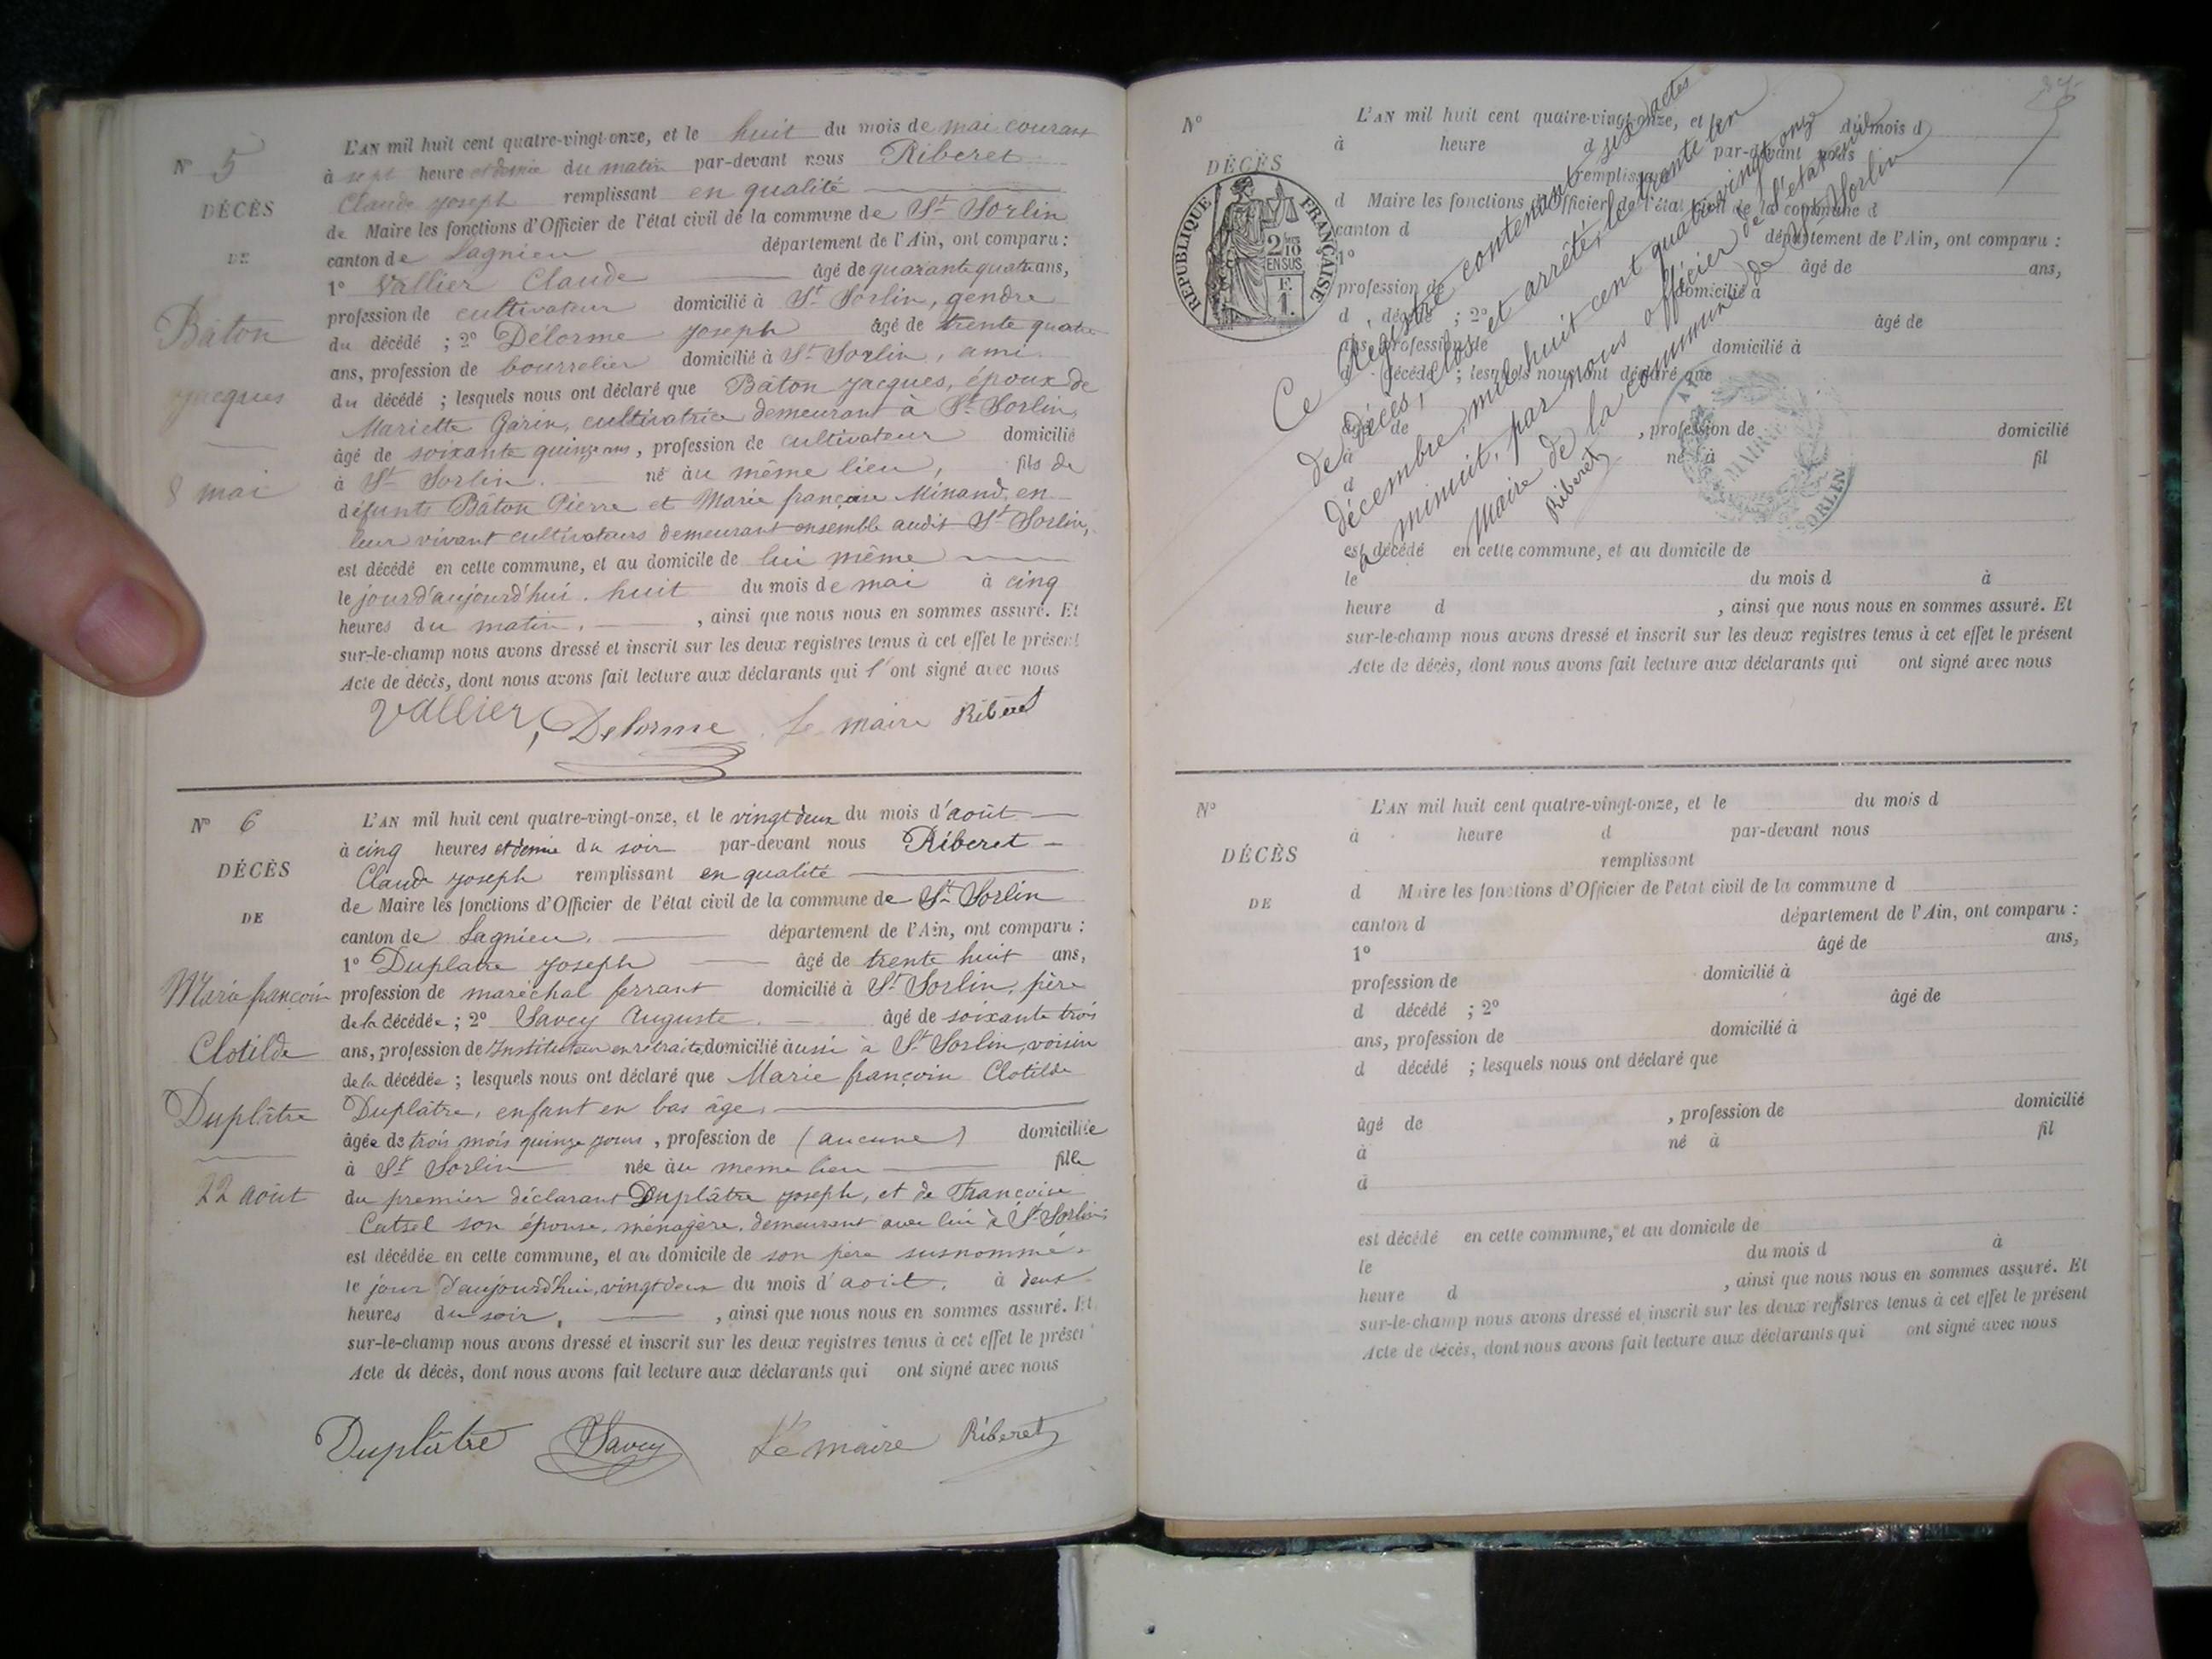 N° 5
DÉCÈS
DE
Bâton
Jacques
8 mai
L'AN mil huit cent quatre-vingt-onze, et le huit du mois de mai courant
à sept heure et demie du matin par-devant nous Riberet
Claude Joseph remplissant en qualité
de Maire les fonctions d'Officier de l'état civil de la commune de St Sorlin
canton de Lagnieu département de l'Ain, ont comparu :
1° Vallier Claude âgé de quarante quatre ans,
profession de cultivateur domicilié à St Sorlin, gendre
du décédé ; 2° Délorme Joseph âgé de trente quatre
ans, profession de bourrelier domicilié à St Sorlin, ami
du décédé ; lesquels nous ont déclaré que Bâton Jacques, époux de
Mariette Garin, cultivatrice demeurant à St Sorlin,
âgé de soixante quinze ans, profession de cultivateur domicilié
à St Sorlin. né au même lieu, fils de
défunts Bâton Pierre et Marie françoise Minand, en
leur vivant cultivateurs demeurant ensemble audit St Sorlin,
est décédé en cette commune, et au domicile de lui même
le jour d'aujourd'hui. huit du mois de mai à cinq
heures du matin, , ainsi que nous nous en sommes assuré. Et
sur-le-champ nous avons dressé et inscrit sur les deux registres tenus à cet effet le présent
Acte de décès, dont nous avons fait lecture aux déclarants qui l'ont signé avec nous
Vallier, Delorme Le maire Riberet
N° 6
DÉCÈS
DE
Marie françoise
Clotilde
Duplâtre
22 août
L'AN mil huit cent quatre-vingt-onze, et le vingt deux du mois d'août
à cinq heures et demie du soir par-devant nous Riberet
Claude Joseph remplissant en qualité
de Maire les fonctions d'Officier de l'état civil de la commune de St Sorlin
canton de Lagnieu. département de l'Ain, ont comparu :
1° Duplatre Joseph âgé de trente huit ans,
profession de maréchal ferrant domicilié à St Sorlin, père
de la décédée ; 2° Savey Auguste. âgé de soixante trois
ans, profession de Instituteur en retraite, domicilié aussi à St Sorlin, voisin
de la décédée ; lesquels nous ont déclaré que Marie françoise Clotilde
Duplâtre, enfant en bas âge,
âgée de trois mois quinze jours, profession de (aucune) domiciliée
à St Sorlin née au meme lieu fille
du premier déclarant Duplâtre Joseph, et de Françoise
son épouse, ménagère, demeurant avec lui à St Sorlin;
est décédée en cette commune, et au domicile de son père susnommé,
le jour d'aujourd'hui, vingt deux du mois d'août. à deux
heures du soir, , ainsi que nous nous en sommes assuré. Et
sur-le-champ nous avons dressé et inscrit sur les deux registres tenus à cet effet le présen
Acte de décès, dont nous avons fait lecture aux déclarants qui ont signé avec nous
Duplâtre Savey Le maire Riberet
N°
DÉCÈS
RÉPUBLIQUE FRANÇAISE
2/10
EN SUS
F.
1.
L'AN mil huit cent quatre-vingt-onze, et du mois d
à heure d par-devant nous
remplissant
d Maire les fonctions d'Officier de l'état civil de la commune d
canton d département de l'Ain, ont comparu :
1° âgé de ans,
profession de domicilié à
d décédé ; 2° âgé de
ans, profession de domicilié à
d décédé ; lesquels nous ont déclaré que
âgé de , profession de domicilié
à né à fil
d
est décédé en cette commune, et au domicile de
le du mois d à
heure d , ainsi que nous nous en sommes assuré. Et
sur-le-champ nous avons dressé et inscrit sur les deux registres tenus à cet effet le présent
Acte de décès, dont nous avons fait lecture aux déclarants qui ont signé avec nous
Ce Registre contenant six actes
de décès, clos et arrêté, le trente un
décembre, mil huit cent quatre vingt onze
à minuit, par nous officier de l'état civil
Maire de la commune de St Sorlin
Riberet
MAIRIE
SORLIN
N°
DÉCÈS
DE
L'AN mil huit cent quatre-vingt-onze, et le du mois d
à heure d par-devant nous
remplissant
d Maire les fonctions d'Officier de l'état civil de la commune d
canton d département de l'Ain, ont comparu :
1° âgé de ans,
profession de domicilié à
d décédé ; 2° âgé de
ans, profession de domicilié à
d décédé ; lesquels nous ont déclaré que
âgé de , profession de domicilié
à né à fil
d
est décédé en cette commune, et au domicile de
le du mois d à
heure d , ainsi que nous nous en sommes assuré. Et
sur-le-champ nous avons dressé et inscrit sur les deux registres tenus à cet effet le présent
Acte de décès, dont nous avons fait lecture aux déclarants qui ont signé avec nous